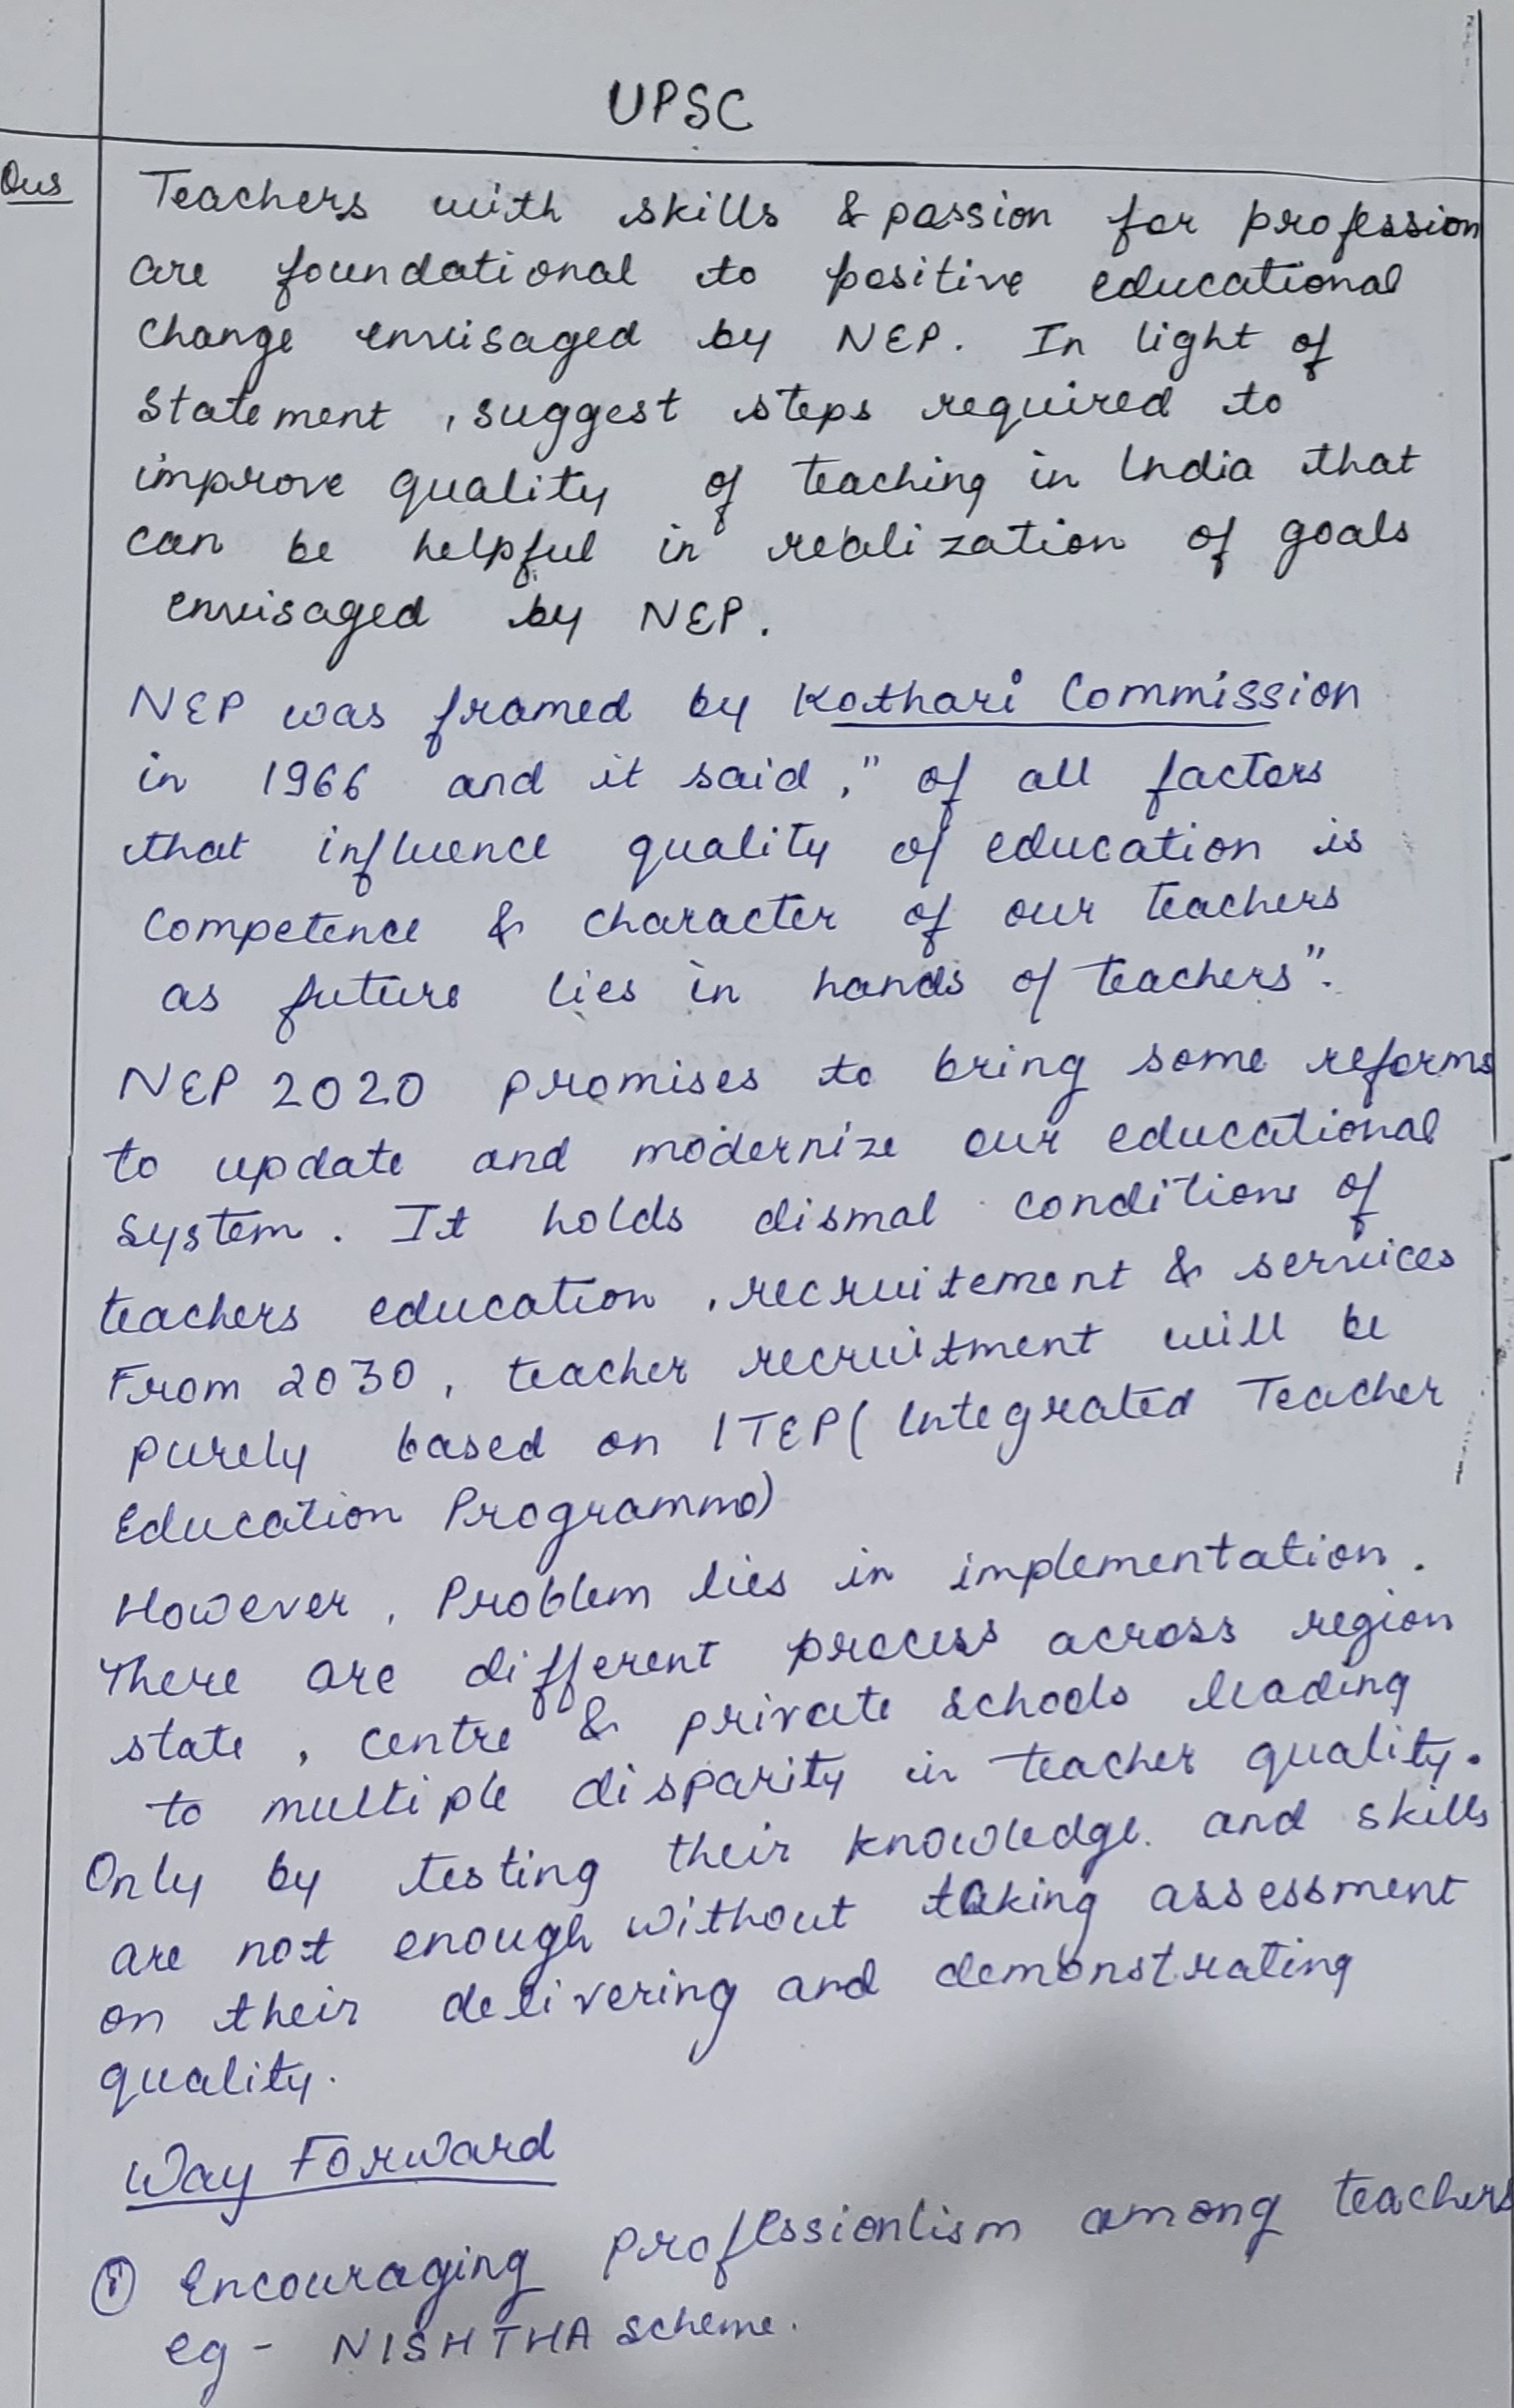 UPSC
Ques
Teachers with skills & passion for profession
are foundational to positive educational
change envisaged by NEP. In light of
statement, suggest steps required to
improve quality of teaching in India that
can be helpful in realization of goals
envisaged by NEP.
NEP was framed by Kothari Commission
in 1966 and it said, " of all factors
that influence quality of education is
competence & character of our teachers
as future lies in hands of teachers".
NEP 2020 promises to bring some reforms
to update and modernize our educational
system. It holds dismal conditions of
teachers education, recruitement & services
From 2030, teacher recruitment will be
purely based on ITEP( Integrated Teacher
Education Programme)
However, Problem lies in implementation.
There are different process across region
state, centre & private schools leading
to multiple disparity in teacher quality.
Only by testing their knowledge. and skills
are not enough without taking assessment
on their delivering and demonstrating
quality.
Way Forward
① Encouraging professionlism among teachers
eg - NISHTHA scheme.